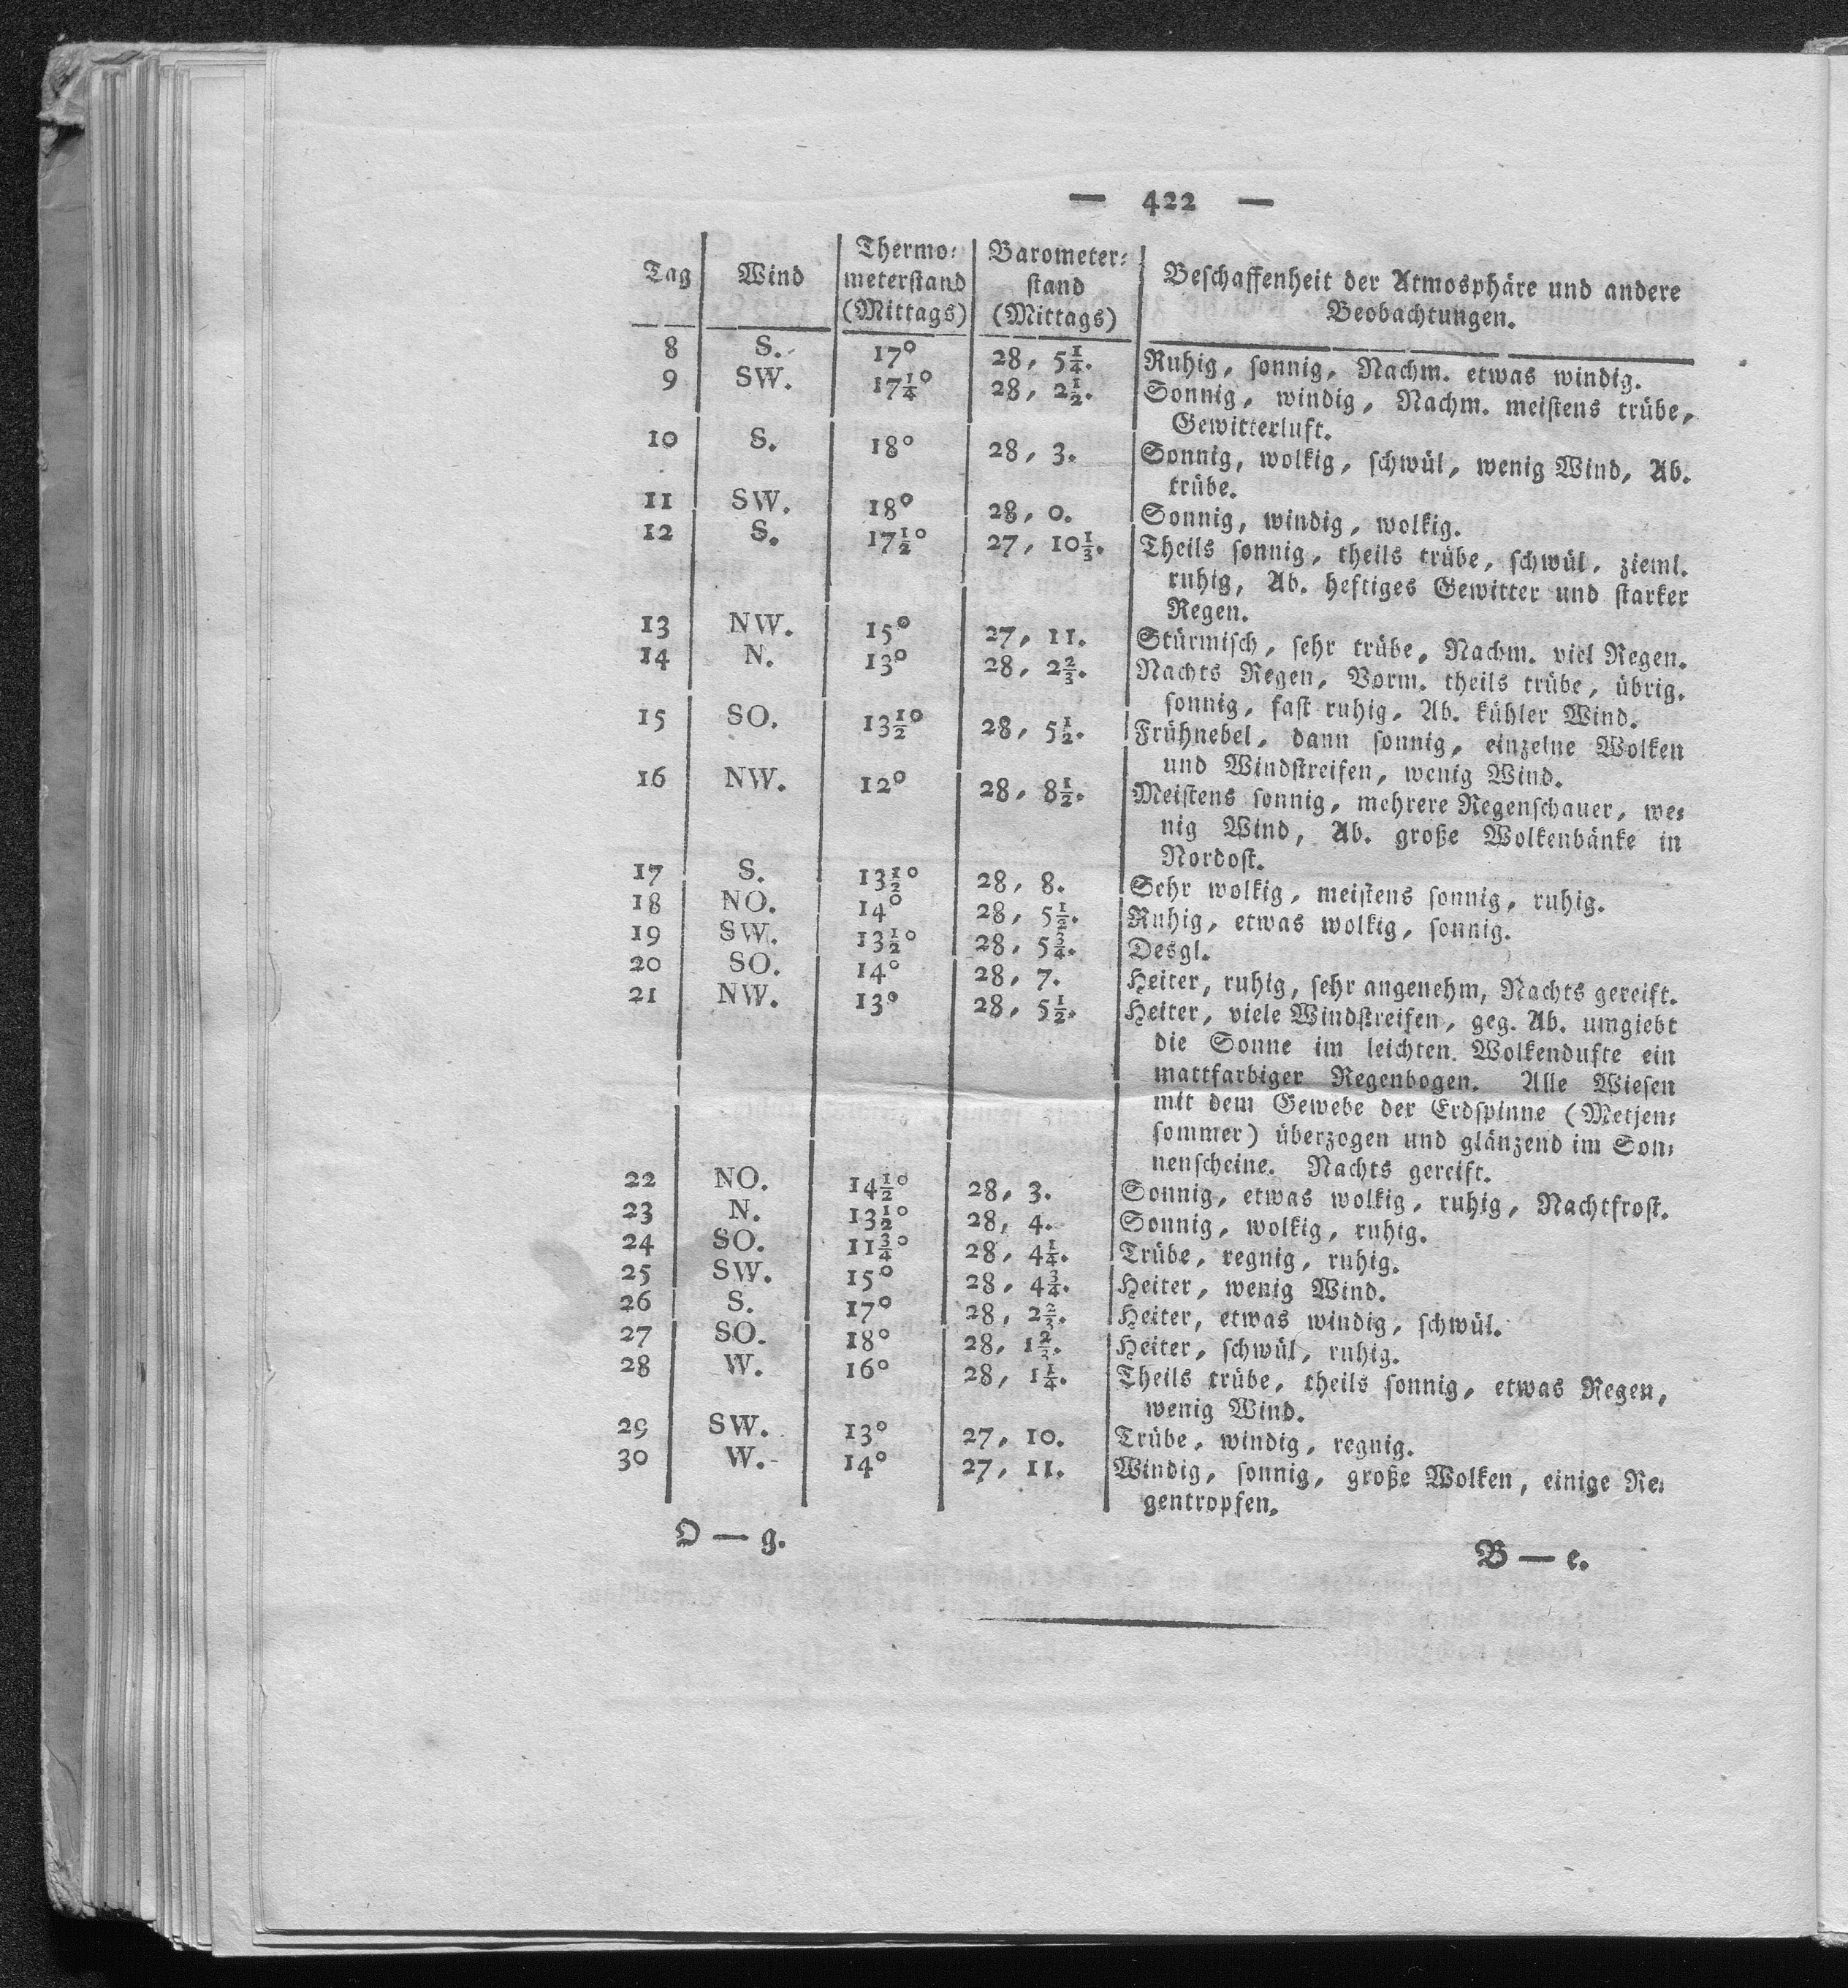 — 422 —
Tag | Wind | Thermo- meterstand (Mittags) | Barometer- stand (Mittags) | Beschaffenheit der Atmosphäre und andere Beobachtungen.
8 | S. | 17° | 28, 5¼. | Ruhig, sonnig, Nachm. etwas windig.
9 | SW. | 17¼° | 28, 2½. | Sonnig, windig, Nachm. meistens trübe,
Gewitterluft.
10 | S. | 18° | 28, 3. | Sonnig, wolkig, schwül, wenig Wind, Ab.
trübe.
11 | SW. | 18° | 28, 0. | Sonnig, windig, wolkig.
12 | S. | 17½° | 27, 10⅓. | Theils sonnig, theils trübe, schwül, zieml.
ruhig, Ab. heftiges Gewitter und starker
Regen.
13 | NW. | 15° | 27, 11. | Stürmisch, sehr trübe, Nachm. viel Regen.
14 | N. | 13° | 28, 2⅔. | Nachts Regen, Vorm. theils trübe, übrig.
sonnig, fast ruhig, Ab. kühler Wind.
15 | SO. | 13½° | 28, 5½. | Frühnebel, dann sonnig, einzelne Wolken
und Windstreifen, wenig Wind.
16 | NW. | 12° | 28, 8½. | Meistens sonnig, mehrere Regenschauer, we-
nig Wind, Ab. große Wolkenbänke in
Nordost.
17 | S. | 13½° | 28, 8. | Sehr wolkig, meistens sonnig, ruhig.
18 | NO. | 14° | 28, 5½. | Ruhig, etwas wolkig, sonnig.
19 | SW. | 13½° | 28, 5¾. | Desgl.
20 | SO. | 14° | 28, 7. | Heiter, ruhig, sehr angenehm, Nachts gereift.
21 | NW. | 13° | 28, 5½. | Heiter, viele Windstreifen, geg. Ab. umgiebt
die Sonne im leichten Wolkendufte ein
mattfarbiger Regenbogen. Alle Wiesen
mit dem Gewebe der Erdspinne (Metjen-
sommer) überzogen und glänzend im Son-
nenscheine. Nachts gereift.
22 | NO. | 14½° | 28, 3. | Sonnig, etwas wolkig, ruhig, Nachtfrost.
23 | N. | 13½° | 28, 4. | Sonnig, wolkig, ruhig.
24 | SO. | 11¾° | 28, 4¼. | Trübe, regnig, ruhig.
25 | SW. | 15° | 28, 4¾. | Heiter, wenig Wind.
26 | S. | 17° | 28, 2⅔. | Heiter, etwas windig, schwül.
27 | SO. | 18° | 28, 1⅔. | Heiter, schwül, ruhig.
28 | W. | 16° | 28, 1¼. | Theils trübe, theils sonnig, etwas Regen,
wenig Wind.
29 | SW. | 13° | 27, 10. | Trübe, windig, regnig.
30 | W. | 14° | 27, 11. | Windig, sonnig, große Wolken, einige Re-
gentropfen.
O — g.
B — e.